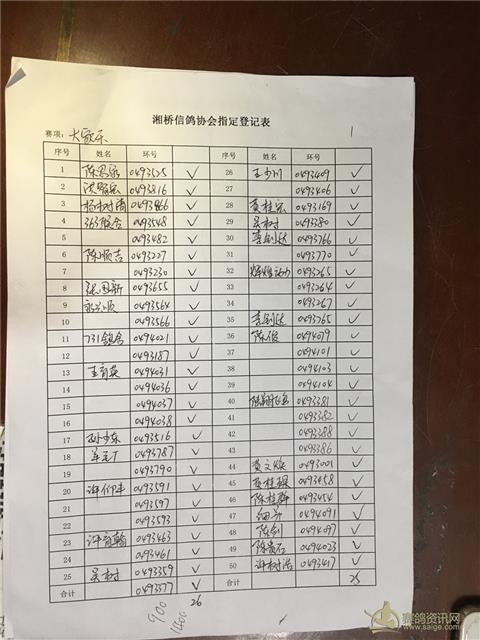 湘桥信鸽协会指定登记表
赛项：大家乐 1
序号 姓名 环号 序号 姓名 环号
1 0493525 ✓ 26 王少川 0493409 ✓
2 0493816 ✓ 27 0493406 ✓
3 杨树清 0493466 ✓ 28 黄桂宏 0493169 ✓
4 363联合 0493548 ✓ 29 吴树 0493380 ✓
5 0493482 ✓ 30 李创达 0493766 ✓
6 陈顺吉 0493227 ✓ 31 0493770 ✓
7 0493230 ✓ 32 辉煌动力 0493265 ✓
8 0493655 ✓ 33 0493264 ✓
9 0493564 ✓ 34 0493267 ✓
10 0493566 ✓ 35 李创达 0493765 ✓
11 731鸽舍 0494021 ✓ 36 陈俊 0494079 ✓
12 0493187 ✓ 37 0494101 ✓
13 王育英 0494031 ✓ 38 0494103 ✓
14 0494036 ✓ 39 0494104 ✓
15 0494037 ✓ 40 0493381 ✓
16 0494038 ✓ 41 0493382 ✓
17 孙少东 0493516 ✓ 42 0493388 ✓
18 0493787 ✓ 43 0493386 ✓
19 0493790 ✓ 44 黄文焕 0493001 ✓
20 许仰丰 0493591 ✓ 45 0493458 ✓
21 0493597 ✓ 46 陈桂群 0493454 ✓
22 0493593 ✓ 47 细弟 0494091 ✓
23 许育翰 0493463 ✓ 48 陈剑 0494097 ✓
24 0493461 ✓ 49 0494023 ✓
25 吴树 0493359 ✓ 50 许树浩 0493417 ✓
合计 0493377 ✓ 合计 25
26
900
赛鸽资讯网
www.saige.com